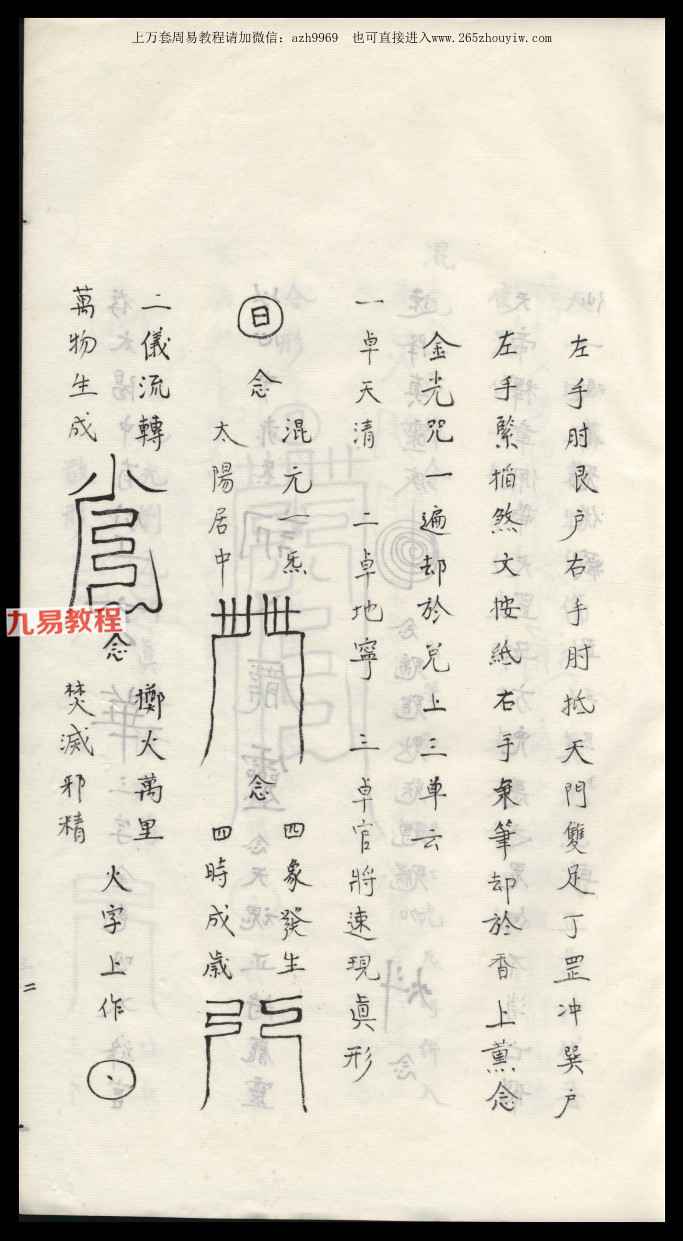 上万套周易教程请加微信: azh9969 也可直接进入www.265zhouyiw.com
左手肘艮户右手肘抵天門雙足丁罡冲巽户
左手緊掐煞文按紙右手秉筆却於香上薰念
金光咒一遍却於兑上三卓云
一卓天清 二卓地寧 三卓官將速現真形
日 念
混元一炁
太陽居中
念
四象發生
四時成歲
二儀流轉
萬物生成
念
擲火萬里
焚滅邪精
火字上作
二
九易教程